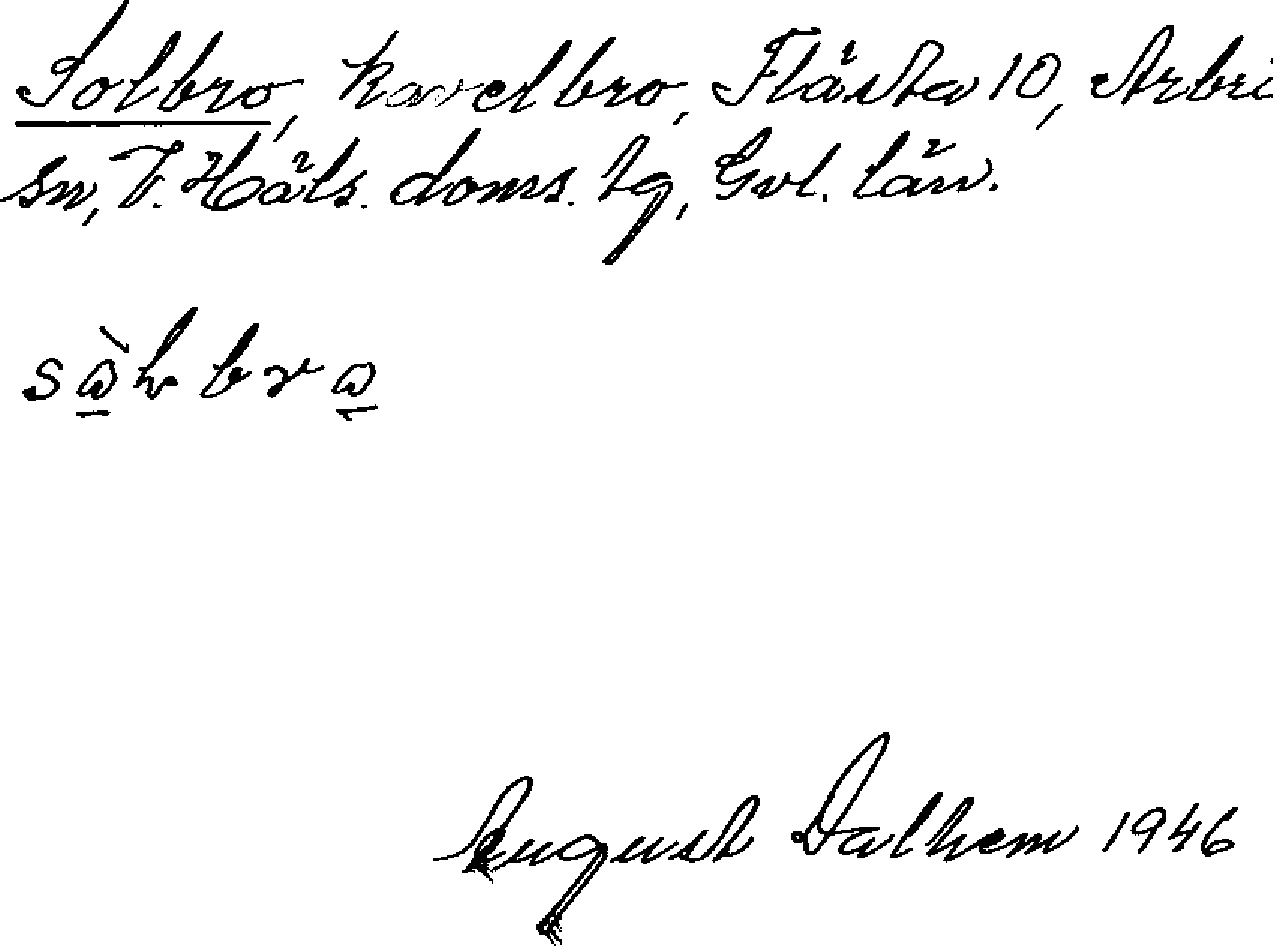 Solbro, kavelbro, Flästa 10, Arbr
sn, V. Häls. doms. tg, Gvl. län.
August Dalhem 1946